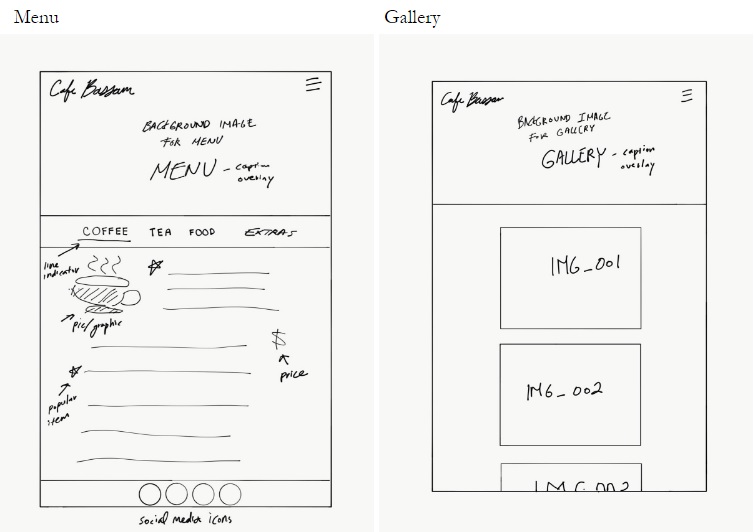 Menu
Cafe Bassam
BACKGROUND IMAGE
FOR MENU
MENU - caption
overlay
COFFEE TEA FOOD EXTRAS
line
indicator
pic/graphic
$
price
popular
item
social media icons
Gallery
Cafe Bassam
BACKGROUND IMAGE
FOR GALLERY
GALLERY - caption
overlay
IMG_001
IMG_002
IMG_002